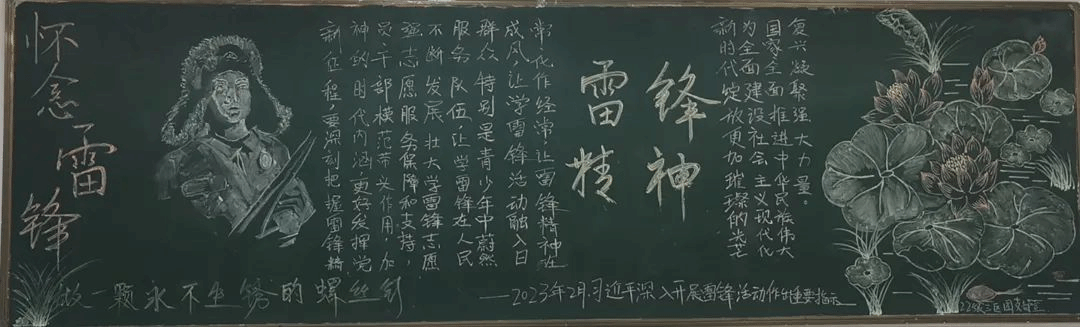 怀念雷锋
新征程要深刻把握雷锋精
神的时代内涵,更好发挥党
员干部模范带头作用,加
强志愿服务保障和支持,
不断发展壮大学雷锋志愿
服务队伍,让学雷锋在人民
群众特别是青少年中蔚然
成风,让学雷锋活动融入日
常、化作经常,让雷锋精神在
雷锋
精神
新时代绽放更加璀璨的光芒
为全面建设社会主义现代化
国家全面推进中华民族伟大
复兴凝聚强大力量。
做一颗永不生锈的螺丝钉
——2023年2月,习近平深入开展雷锋活动作出重要指示